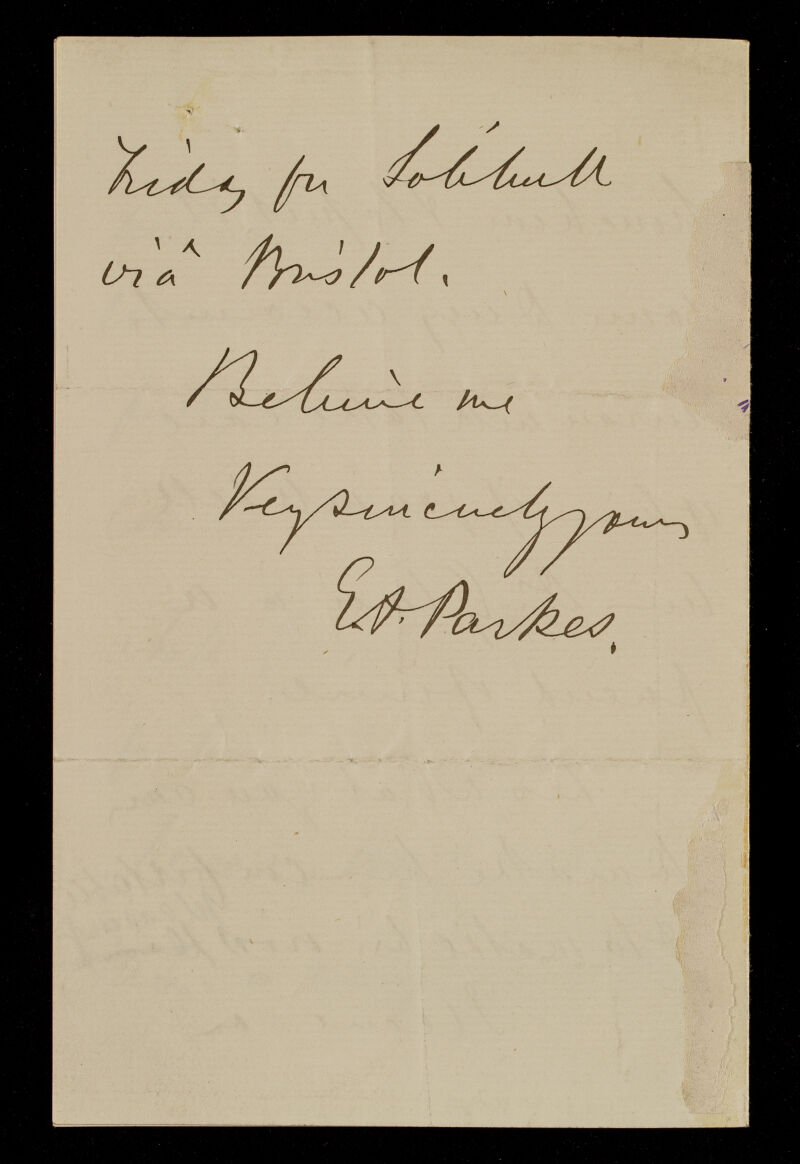 Friday for Solihull
viâ Bristol.
Believe me
Very sincerely yours
E.A. Parkes.